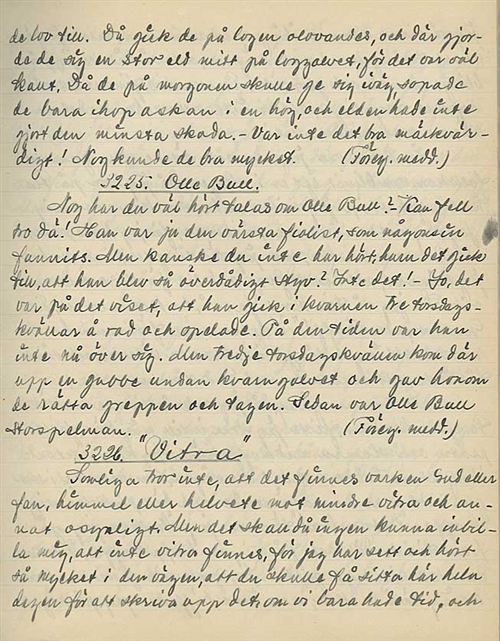 de lov till. Då gick de på logen olovandes, och där gjor-
da de sig en stor eld mitt på loggolvet, för det var väl
kant, Då de på morgonen skulle ge sig iväg, sopade
de bara ihop askan i en hög, och elden hade inte
gjort den minsta skada. - Var inte det bra märkvär-
digt! Nog kunde de bra mycket. (Föreg. medd.)
3225. Olle Bull.
Nog har du väl hört talas om Olle Bull? - Kan fell
tro da! Han var ju den värsta fiolist, som någonsin
fannits. Men kanske du inte har hört, hur det gick
till, att han blev så överdådigt styv? Inte det! - Jo, det
var på det viset, att han gick i kvarnen tre torsdags-
kvällar å rad och spelade. På den tiden var han
inte nå över sig. Men tredje torsdagskvällen kom där
upp en gubbe undan kvarngolvet och gav honom
de rätta greppen och tagen. Sedan var Olle Bull
storspelman. (Föreg. medd.)
3226. "Vitra"
Somliga tror inte, att det finnes varken Gud eller
fan, himmel eller helvete mot mindre vitra och an-
nat osynligt. Men det skall då ingen kunna inbil-
la mig, att inte vitra finnes, för jag har sett och hört
så mycket i den vägen, att du skulle få sitta här hela
dagen för att skriva upp det, om vi bara hade tid, och